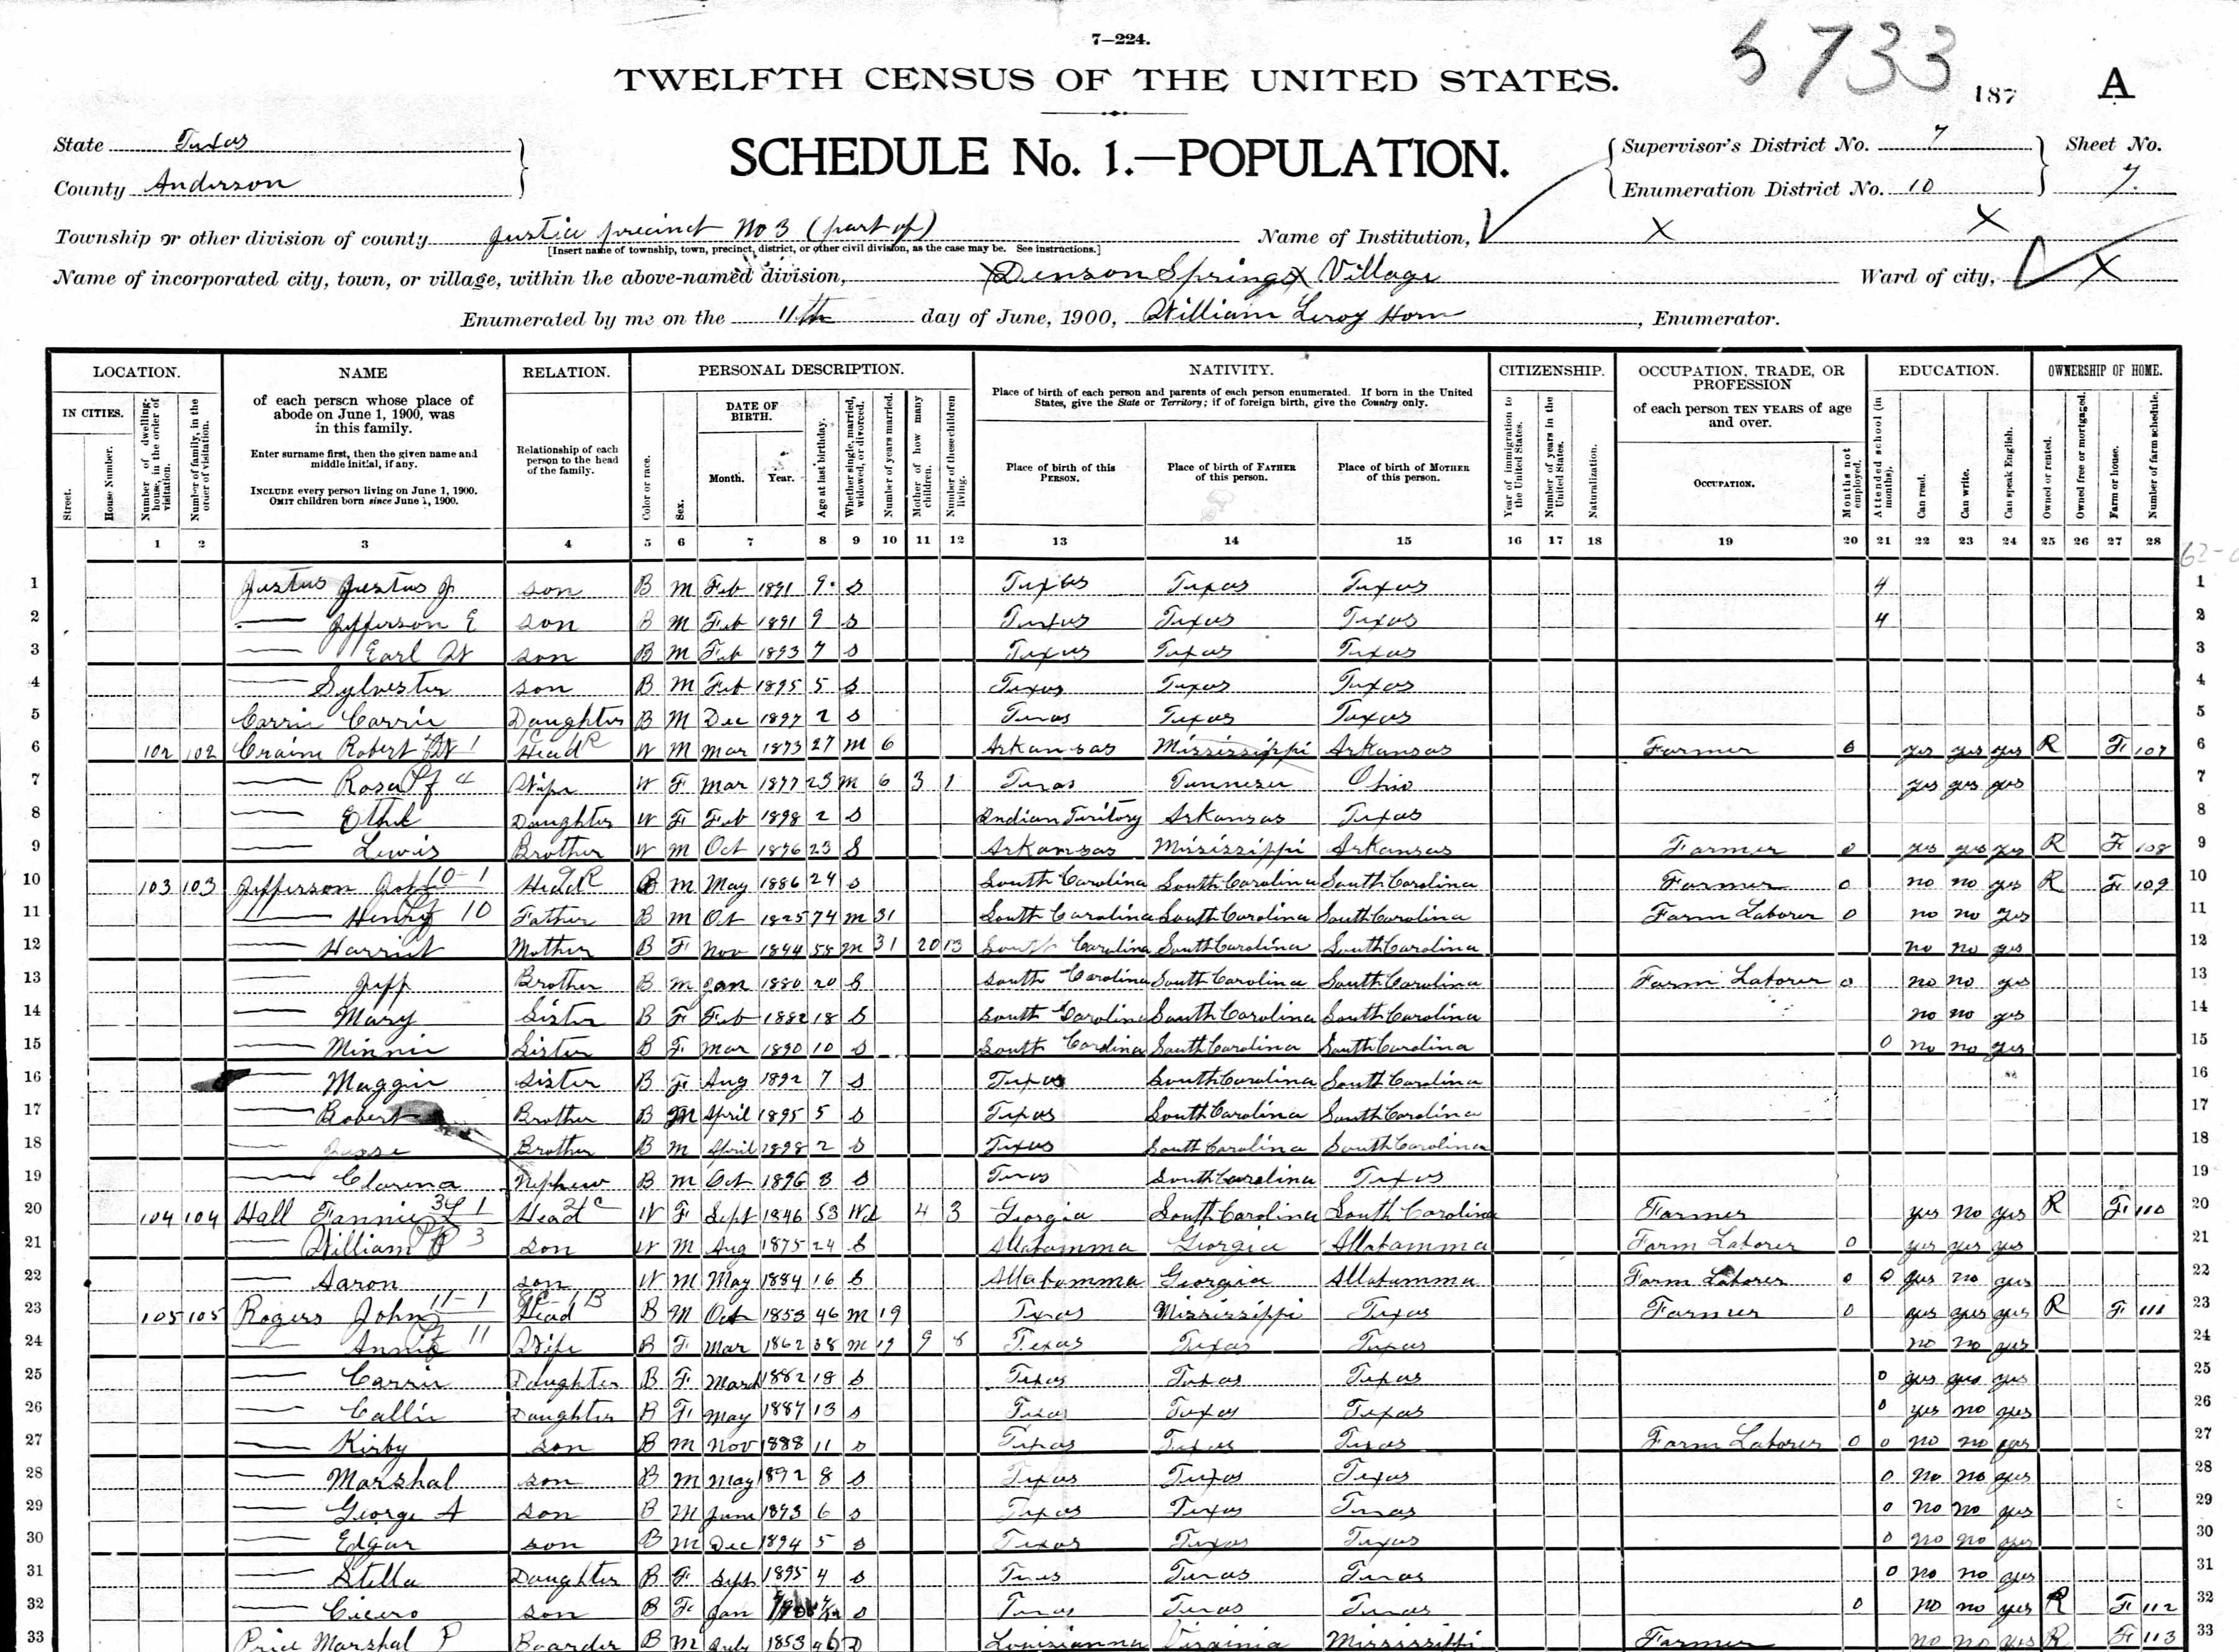 7—224.
5733
TWELFTH CENSUS OF THE UNITED STATES.
187 A
State Texas
County Anderson
SCHEDULE No. 1.—POPULATION.
Supervisor's District No. 7
Enumeration District No. 10
Sheet No. 7
Township or other division of county Justice precinct No 3 (part of)
[Insert name of township, town, precinct, district, or other civil division, as the case may be. See instructions.]
Name of Institution, X X
Name of incorporated city, town, or village, within the above-named division, X Denson Springs X Village
Ward of city, X
Enumerated by me on the 11th day of June, 1900, William Leroy Horn, Enumerator.
LOCATION. NAME RELATION. PERSONAL DESCRIPTION. NATIVITY. CITIZENSHIP. OCCUPATION, TRADE, OR PROFESSION EDUCATION. OWNERSHIP OF HOME.
IN CITIES.
Street.
House Number.
Number of dwelling-house, in the order of visitation.
Number of family, in the order of visitation.
of each person whose place of abode on June 1, 1900, was in this family.
Enter surname first, then the given name and middle initial, if any.
INCLUDE every person living on June 1, 1900.
OMIT children born since June 1, 1900.
Relationship of each person to the head of the family.
Color or race.
Sex.
DATE OF BIRTH.
Month.
Year.
Age at last birthday.
Whether single, married, widowed, or divorced.
Number of years married.
Mother of how many children.
Number of these children living.
Place of birth of each person and parents of each person enumerated. If born in the United States, give the State or Territory; if of foreign birth, give the Country only.
Place of birth of this PERSON.
Place of birth of FATHER of this person.
Place of birth of MOTHER of this person.
Year of immigration to the United States.
Number of years in the United States.
Naturalization.
of each person TEN YEARS of age and over.
OCCUPATION.
Months not employed.
Attended school (in months).
Can read.
Can write.
Can speak English.
Owned or rented.
Owned free or mortgaged.
Farm or house.
Number of farm schedule.
1 2 3 4 5 6 7 8 9 10 11 12 13 14 15 16 17 18 19 20 21 22 23 24 25 26 27 28
1 Justus Justus J son B M Feb 1891 9 S Texas Texas Texas 4 1
2 — Jefferson E son B M Feb 1891 9 S Texas Texas Texas 4 2
3 — Earl W son B M Feb 1893 7 S Texas Texas Texas 3
4 — Sylvester son B M Feb 1895 5 S Texas Texas Texas 4
5 Carrie Carrie Daughter B M Dec 1897 2 S Texas Texas Texas 5
6 102 102 Craine Robert W 1 Head W M Mar 1873 27 M 6 Arkansas Mississippi Arkansas Farmer 6 yes yes yes R F 107 6
7 — Rosa 4 Wife W F Mar 1877 23 M 6 3 1 Texas Tennesee Ohio yes yes yes 7
8 — Ethel Daughter W F Feb 1898 2 S Indian Teritory Arkansas Texas 8
9 — Lewis Brother W M Oct 1876 23 S Arkansas Mississippi Arkansas Farmer 0 yes yes yes R F 108 9
10 103 103 Jefferson John 10-1 Head B M May 1886 24 S South Carolina South Carolina South Carolina Farmer 0 no no yes R F 109 10
11 — Henry 10 Father B M Oct 1825 74 M 31 South Carolina South Carolina South Carolina Farm Laborer 0 no no yes 11
12 — Harriet Mother B F Nov 1844 55 M 31 20 13 South Carolina South Carolina South Carolina no no yes 12
13 — Jeff Brother B M Jan 1880 20 S South Carolina South Carolina South Carolina Farm Laborer 0 no no yes 13
14 — Mary Sister B F Feb 1882 18 S South Carolina South Carolina South Carolina no no yes 14
15 — Minnie Sister B F Mar 1890 10 S South Carolina South Carolina South Carolina 0 no no yes 15
16 — Maggie Sister B F Aug 1892 7 S Texas South Carolina South Carolina 16
17 — Robert Brother B M April 1895 5 S Texas South Carolina South Carolina 17
18 — Jesse Brother B M April 1898 2 S Texas South Carolina South Carolina 18
19 — Clarena Nephew B M Oct 1896 3 S Texas South Carolina Texas 19
20 104 104 Hall Fannie 1 Head W F Sept 1846 53 Wd 4 3 Georgia South Carolina South Carolina Farmer yes no yes R F 110 20
21 — William P 3 son W M Aug 1875 24 S Allabamma Georgia Allabamma Farm Laborer 0 yes yes yes 21
22 — Aaron son W M May 1884 16 S Allabamma Georgia Allabamma Farm Laborer 0 0 yes no yes 22
23 105 105 Rogers John 11-1 Head B M Oct 1853 46 M 19 Texas Mississippi Texas Farmer 0 yes yes yes R F 111 23
24 — Annie 11 Wife B F Mar 1862 38 M 19 9 8 Texas Texas Texas no no yes 24
25 — Carrie Daughter B F March 1882 18 S Texas Texas Texas 0 yes yes yes 25
26 — Callie Daughter B F May 1887 13 S Texas Texas Texas 0 yes no yes 26
27 — Kirby son B M Nov 1888 11 S Texas Texas Texas Farm Laborer 0 0 no no yes 27
28 — Marshal son B M May 1892 8 S Texas Texas Texas 0 no no yes 28
29 — George A son B M June 1893 6 S Texas Texas Texas 0 no no yes 29
30 — Edgar son B M Dec 1894 5 S Texas Texas Texas 0 no no yes 30
31 — Stella Daughter B F Sept 1895 4 S Texas Texas Texas 0 no no yes 31
32 — Cicero son B F Jan S Texas Texas Texas 0 no no yes R F 112 32
33 Price Marshal P Boarder B M July 1853 46 D Louisianna Virginia Mississippi Farmer no no yes R F 113 33